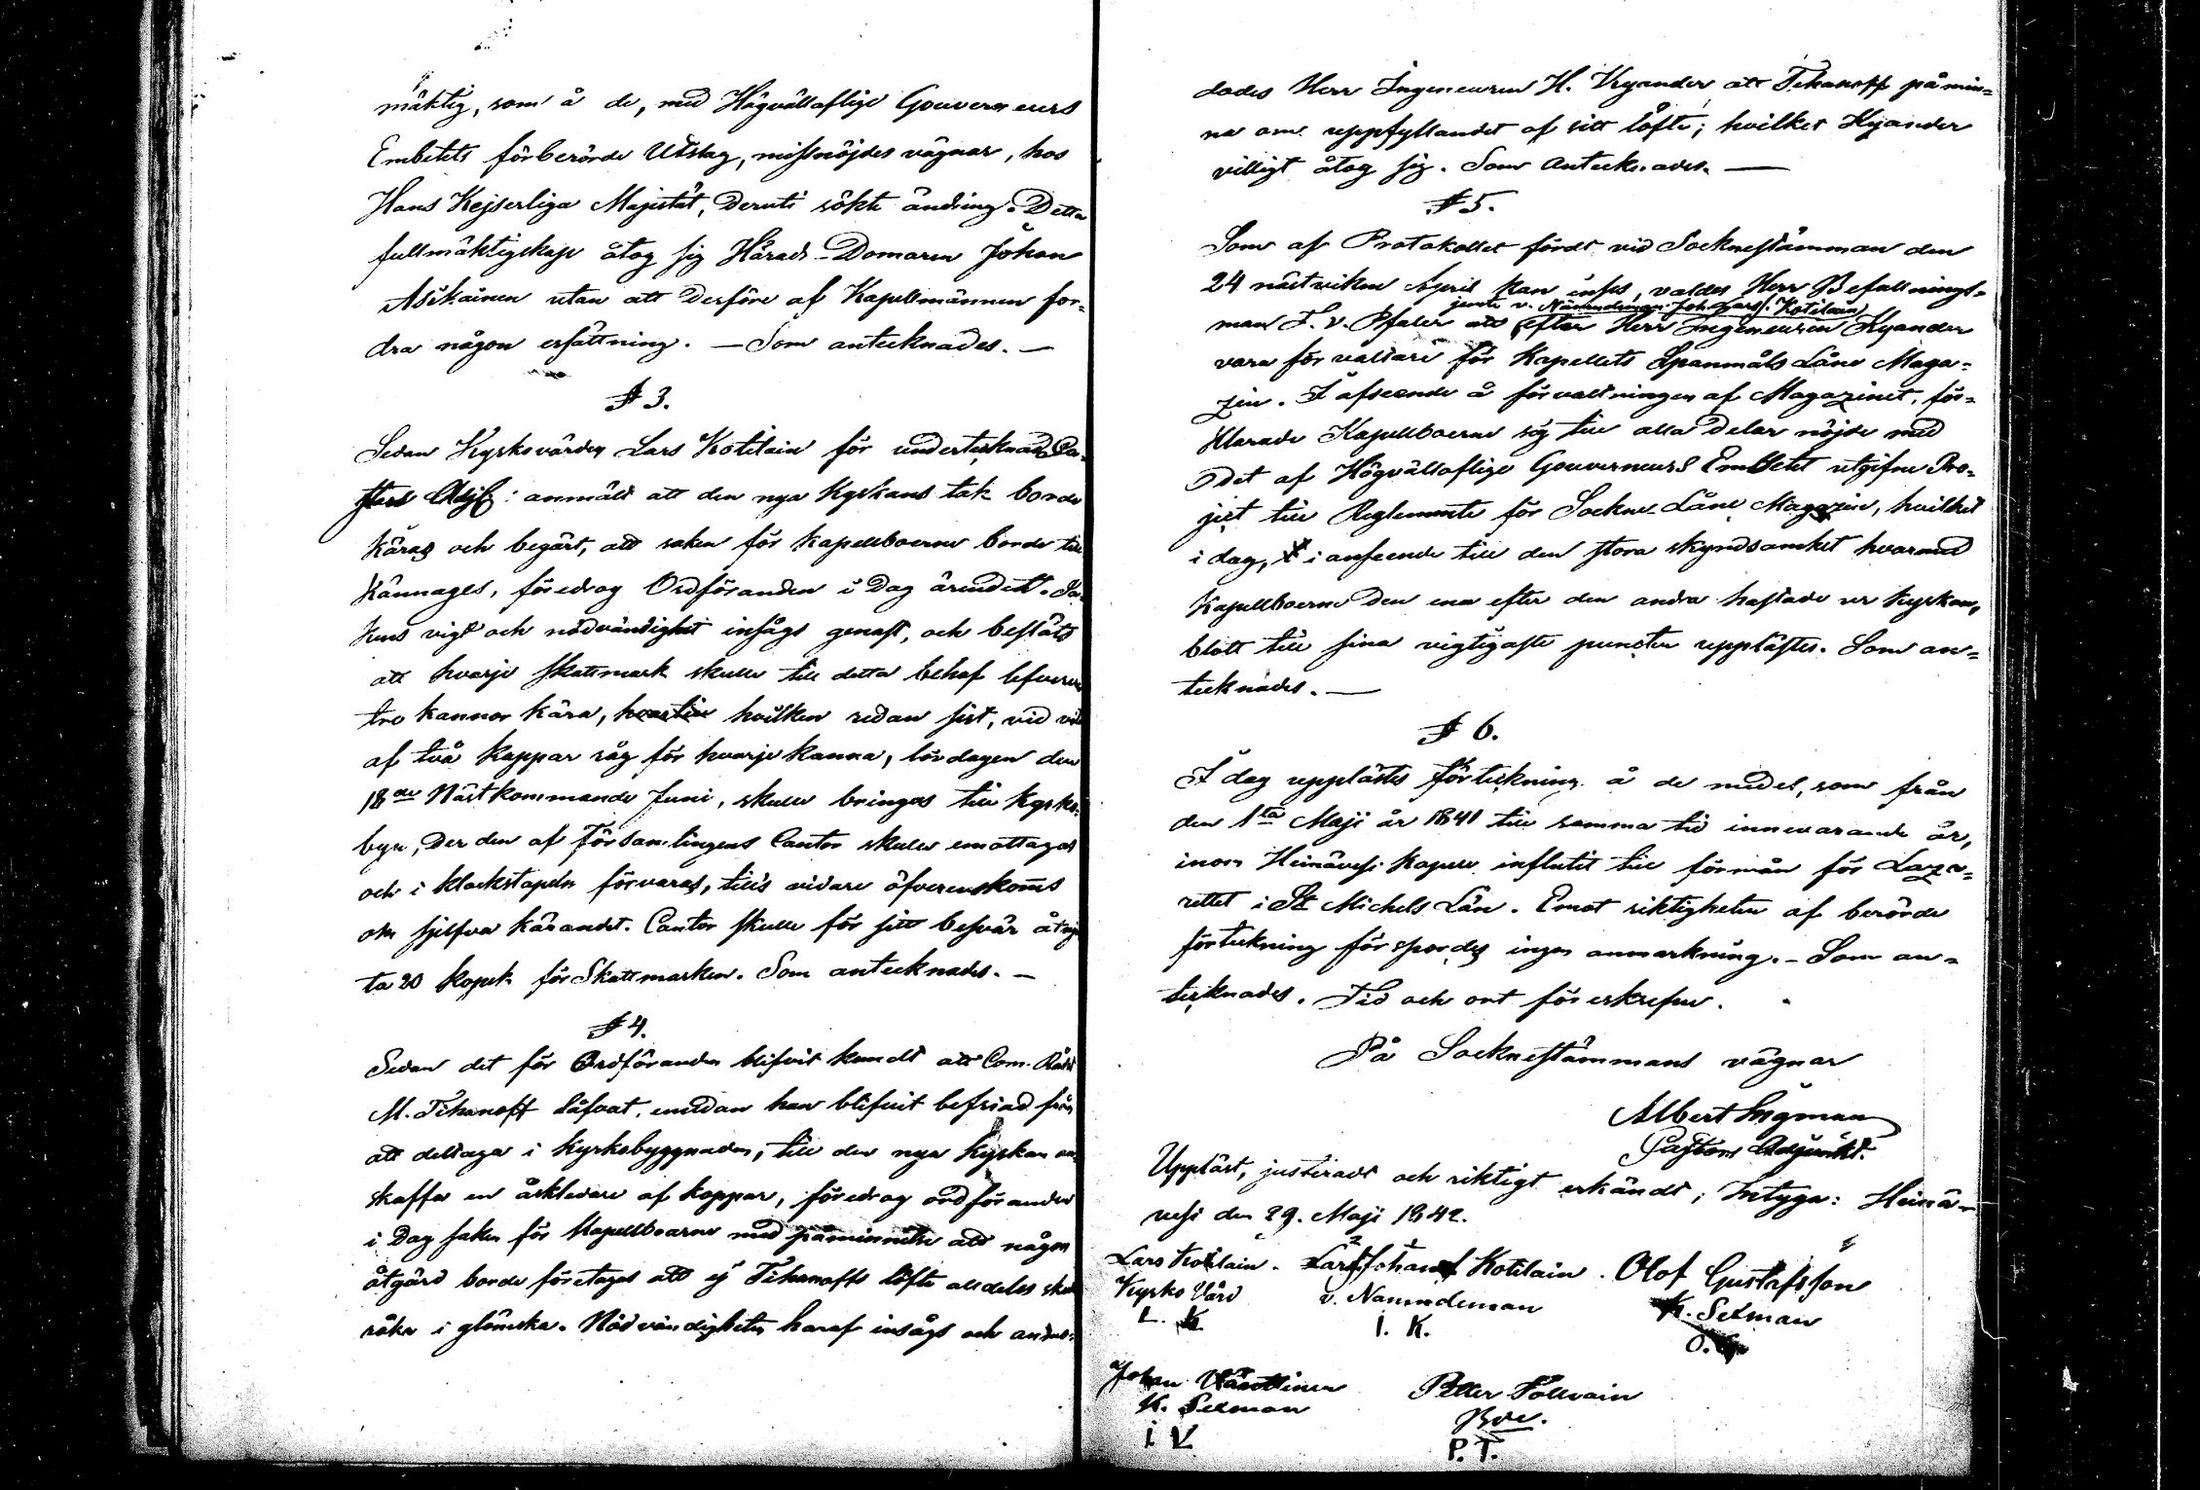 mäktig, som å de, med Högvällaflige Gouverneurs
Embetets förberörde Utslag, missnöjdes vägnar, hos
Hans Kejserliga Majestät, deruti sökte ändring. Detta
fullmäktigskap åtog sig Härads-Domaren Johan
Asikainen utan att derföre af Kapellmännen for-
dra någon ersättning. — Som antecknades. —
§ 3.
Sedan Kyrkovärden Lars Kotilain för undertecknad Pa-
stors Adj: anmält att den nya Kyrkans tak borde
käras och begärt, att saken för kapellboerne borde till
kännages, föredrog Ordföranden i dag ärendet. Sa-
kens vigt och nödvändighet insågs genast, och beslöts
att hvarje skattmark skulle till detta behof lefverera
tre kannor kära, hvilken sedan sist, vid vite
af två kappar råg för hvarje kanna, lördagen den
18de Nästkommande Juni, skulle bringas till Kyrko-
byn, der den af Församlingens Cantor skulle emottagas
och i klockstapeln förvaras, tills vidare öfverenskoms
om sjelfva kärandet. Cantor skulle för sitt besvär åtnju
ta 20 kopek för Skattmarken. Som antecknades. —
§ 4.
Sedan det för Ordföranden blifvit kundt att Com. Rådet
M. Tihanoff låfvat, emedan han blifvit befriad från
att deltaga i kyrkobyggnaden, till den nya kyrkan an-
skaffa en åskledare af koppar, föredrog ordföranden
i dag saken för Kapellboarne med påminnelse att någon
åtgärd borde företagas att ej Tihanoffs löfte alldeles skulle
råka i glömska. Nödvändigheten haraf insågs och anmo-
dades Herr Ingeneuren H. Kyander att Tihanoff påmin-
na om uppfyllandet af sitt löfte; hvilket Kyander
villigt åtog sig. Som antecknades. —
§ 5.
Som af Protokollet fördt vid Socknestämman den
24 nästvikne April kan inses, valdes Herr Befallnings-
jemte v. Nämndeman Joh. Larss. Kotilain
man F. v. Pfaler att efter Herr Ingeneuren Kyander
vara förvaltare för Kapellets Spanmåls Låne Maga-
zin. I afseende å förvaltningen af Magazinet, för-
klarade Kapellboerne sig till alla delar nöjde med
det af Högvällaflige Gouverneurs Embetet utgifne Pro-
ject till Reglemente för Sockne-Låne Magazine, hvilket
i dag, i anseende till den stora skyndsamhet hvarmed
Kapellboerne den ena efter den andra hastade ur kyrkan,
blott till sina vigtigaste puncter upplästes. Som an-
tecknades. —
§ 6.
I dag upplästes förteckning å de medel, som från
den 1sta Maji år 1841 till samma tid innevarande år,
inom Heinävesi Kapell influtit till förmån för Laza-
rettet i St Michels Län. Emot riktigheten af berörde
förteckning förspordes ingen anmärkning. — Som an-
tecknades. Tid och ort föreskrefne.
På Sockneståmmans vägnar
Albert Ingman
Pastors Adjunkt.
Uppläst, justeradt och riktigt erkändt; Intyga: Heinä-
vesi den 29. Maji 1842.
Lars Kotilain. Lars Johan Kotilain. Olof Gustafsson
Kyrko Värd v. Namndeman K. Sexman
L. K. I. K. O. G.
Johan Väнттinen Petter Tolvain
K. Sexman Boe.
I V P. T.